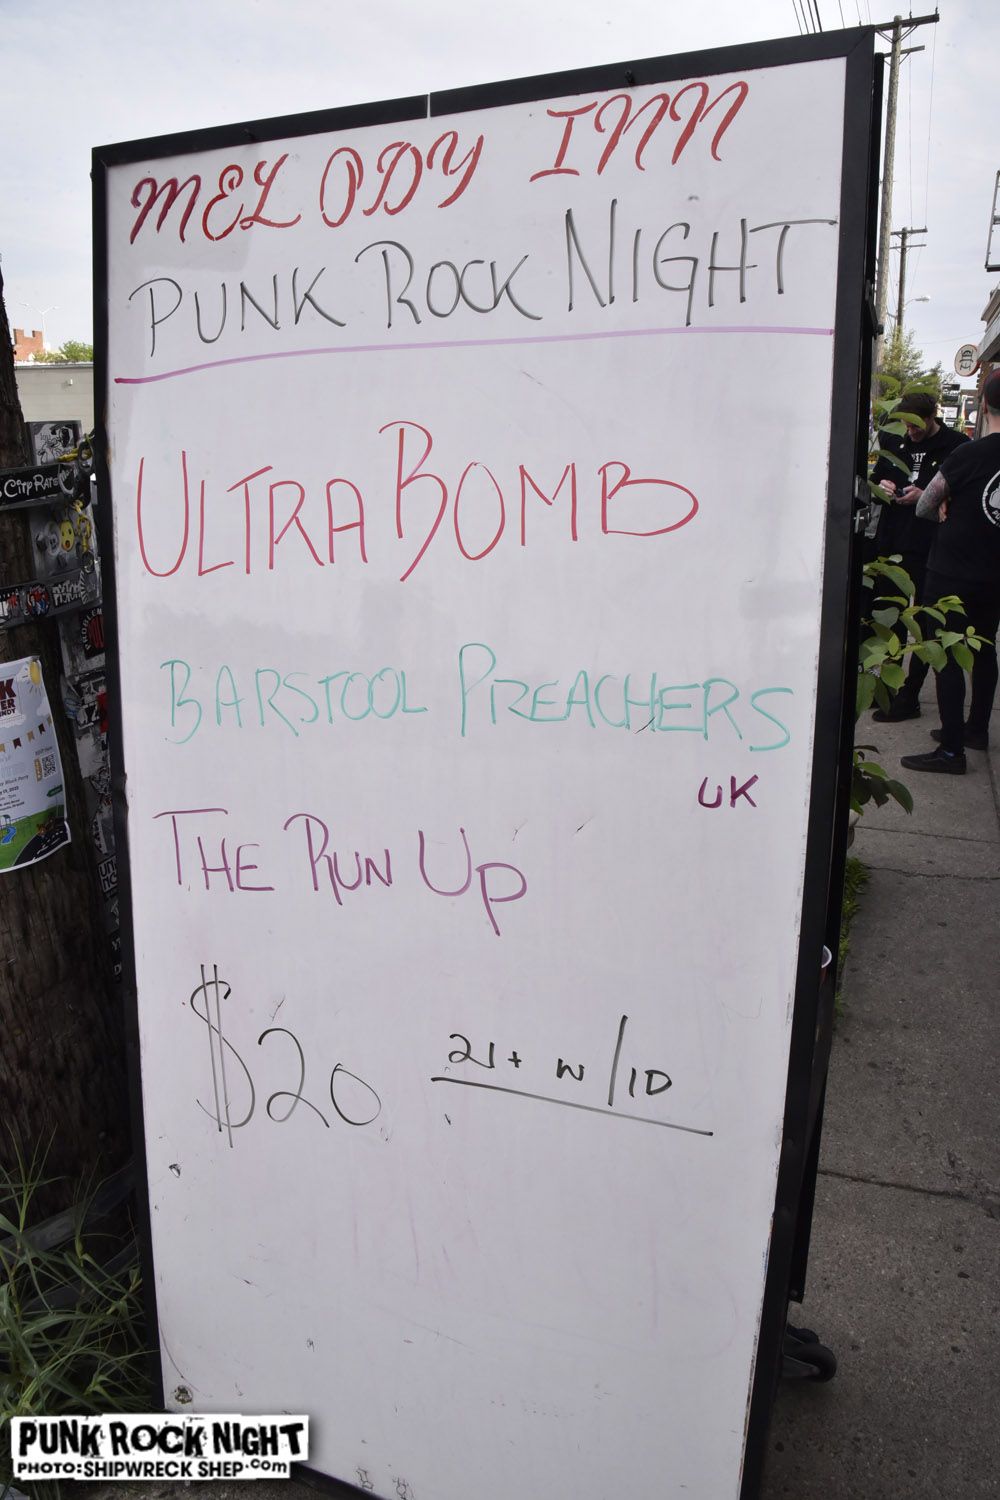 MELODY INN
PUNK ROCK NIGHT
ULTRABOMB
BARSTOOL PREACHERS
UK
THE RUN UP
$20
21+ W/ID
CITY RATS
PROBLEM
PUNK ROCK NIGHT
PHOTO:SHIPWRECK SHEP.com